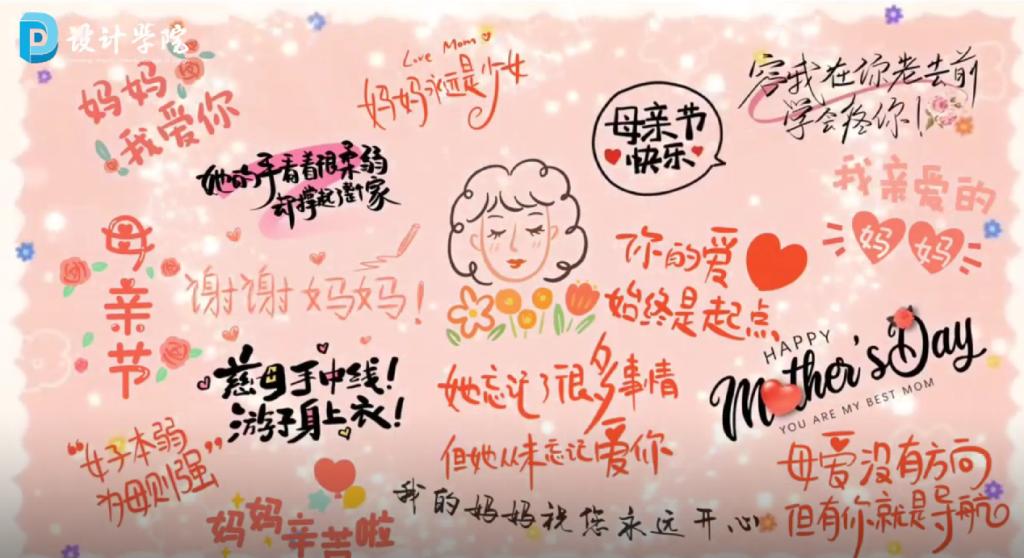 设计学院
妈妈
我爱你
Love Mom
妈妈永远是少女
母亲节
快乐
容我在你老去前
学会疼你!
她的手看着很柔弱
却撑起了整个家
我亲爱的
妈妈
母亲节
谢谢妈妈!
你的爱
始终是起点
慈母手中线!
游子身上衣!
她忘记了很多事情
但她从未忘记爱你
HAPPY
Mother's Day
YOU ARE MY BEST MOM
“女子本弱
为母则强”
妈妈辛苦啦
我的妈妈祝您永远开心
母爱没有方向
但有你就是导航